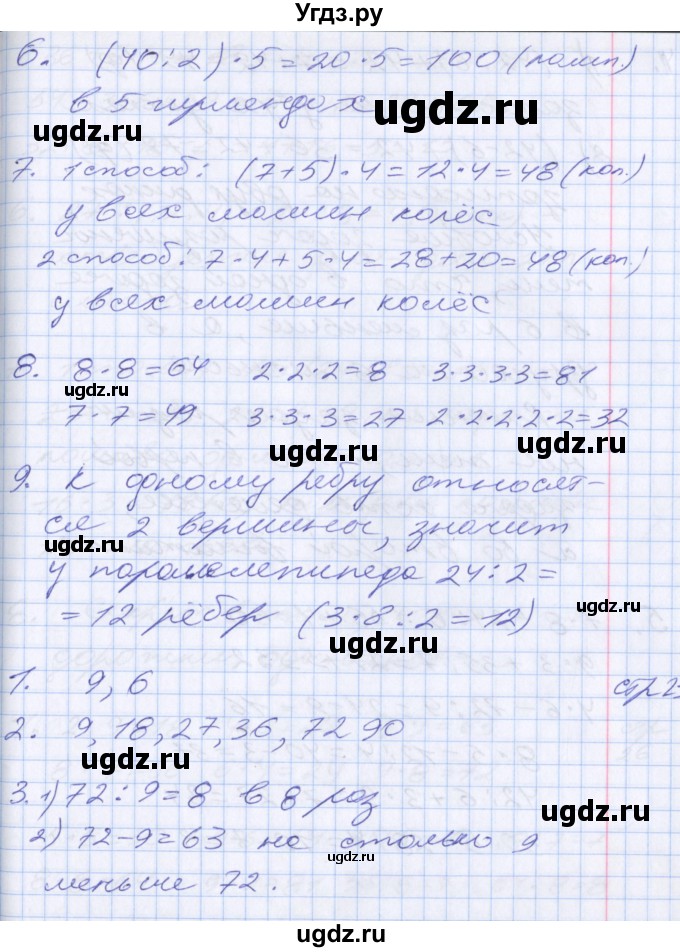 Угдз.ру
6. (40:2)·5=20·5=100 (ламп.)
в 5 гирляндах
ugdz.ru ugdz.ru
7. 1 способ: (7+5)·4=12·4=48 (кол.)
у всех машин колёс
2 способ: 7·4+5·4=28+20=48 (кол.)
у всех машин колёс
8. 8·8=64 2·2·2=8 3·3·3·3=81
ugdz.ru
7·7=49 3·3·3=27 2·2·2·2·2=32
ugdz.ru ugdz.ru
9. К одному ребру относят-
ся 2 вершины, значит
ugdz.ru
у параллепипеда 24:2=
ugdz.ru
=12 рёбер (3·8:2=12)
ugdz.ru
1. 9, 6 стр 2
2. 9, 18, 27, 36, 72 90
ugdz.ru
3. 1) 72:9=8 в 8 раз
ugdz.ru
2) 72-9=63 на столько 9
ugdz.ru
меньше 72.
ugdz.ru